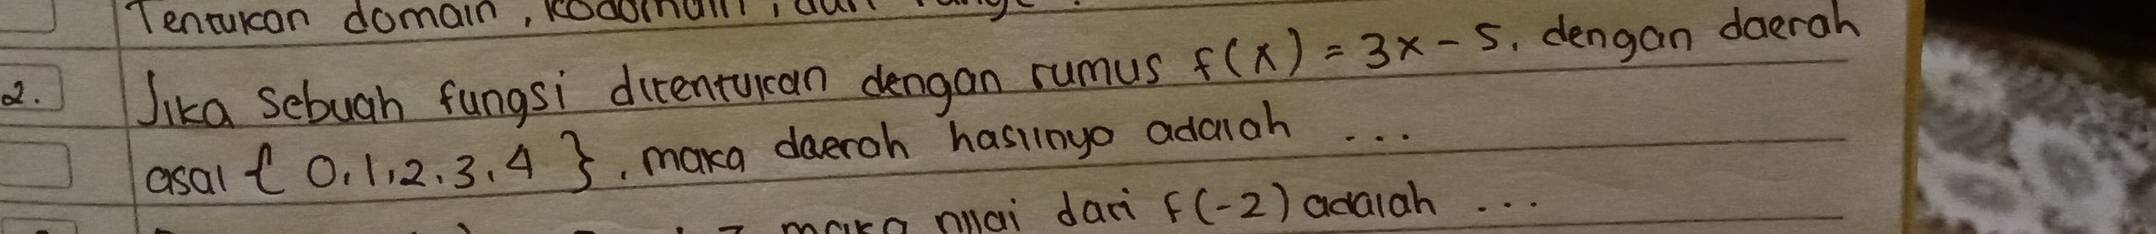 Tentukan domain, kodomain, dan range
2. Jika sebuah fungsi ditentukan dengan rumus f(x) = 3x - 5, dengan daerah
asal { 0, 1, 2, 3, 4 }, maka daerah hasilnya adalah ...
maka nilai dari f(-2) adalah ...